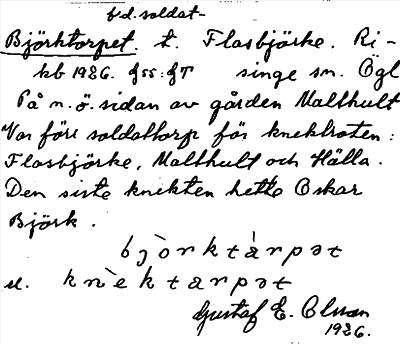 f.d. soldat-
Björktorpet. t. Flasbjörke. Ri-
kb 1926. fss: fT singe sn. Ögl
På n.ö. sidan av gården Malthult
Var förr soldattorp för knektroten:
Flasbjörke, Malthult och Hälla.
Den siste knekten hette Oskar
Björk.
bjòrktàrpət
el. knèktarpət
Gustaf E. Olsson
1926.